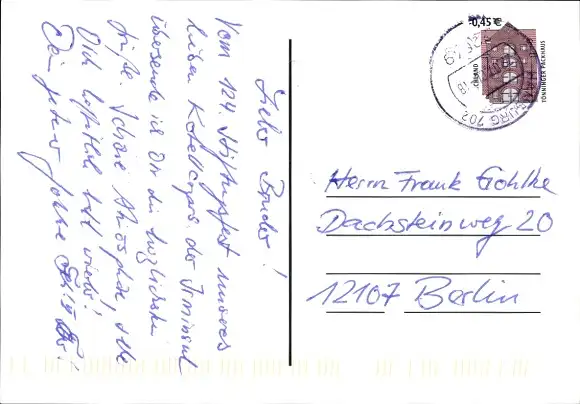 Lieber Bruder!
Vom 124. Stiftungsfest unseres
lieben Kartellcorps der Irminsul
übersende ich Dir die herzlichsten
Grüße. Schöne Atmosphäre, solle
Dich
Dein
0,45 €
TÖNNINGER PACKHAUS
Herrn Frank Gohlke
Dachsteinweg 20
12107 Berlin